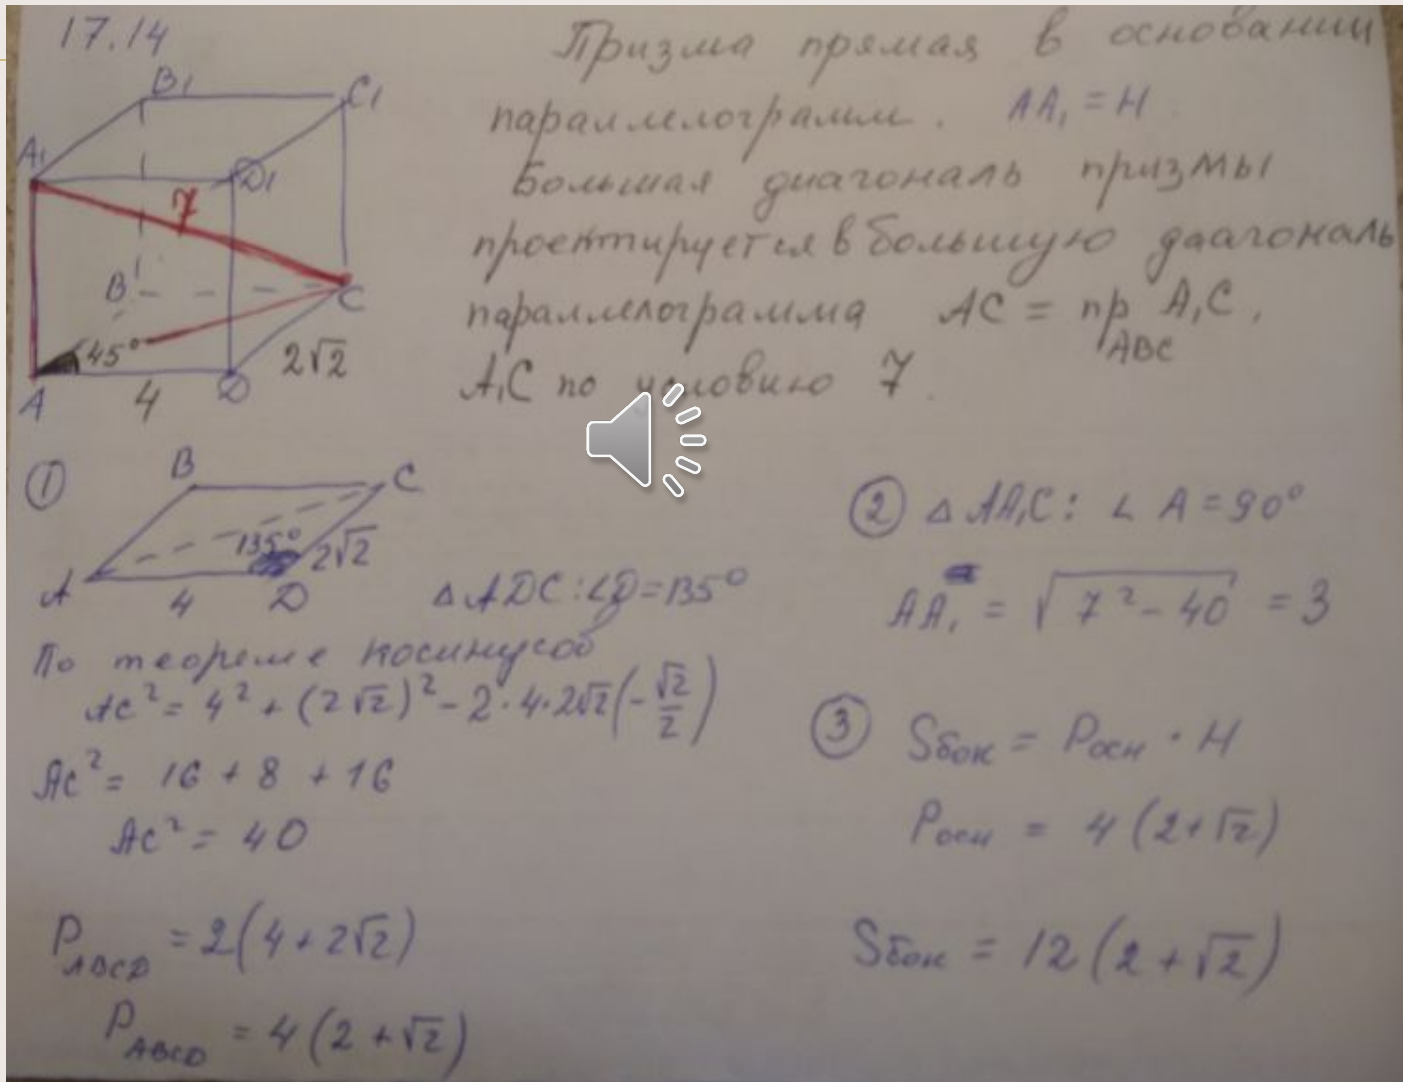 17.14
Призма прямая в основании
параллелограмм. AA₁ = H
Большая диагональ призмы
проектируется в большую диагональ
параллелограмма AC = пр A₁C,
ABC
A₁C по условию 7.
B₁
C₁
A₁
D₁
7
B
C
45°
2√2
A
4
D
①
B
C
135°
2√2
A
4
D
△ADC: ∠D = 135°
По теореме косинусов
AC² = 4² + (2√2)² - 2·4·2√2(-√2/2)
AC² = 16 + 8 + 16
AC² = 40
P_ABCD = 2(4 + 2√2)
P_ABCD = 4(2 + √2)
② △AA₁C: ∠A = 90°
AA₁ = √(7² - 40) = 3
③ Sбок = Pосн · H
Pосн = 4(2+√2)
Sбок = 12(2 + √2)